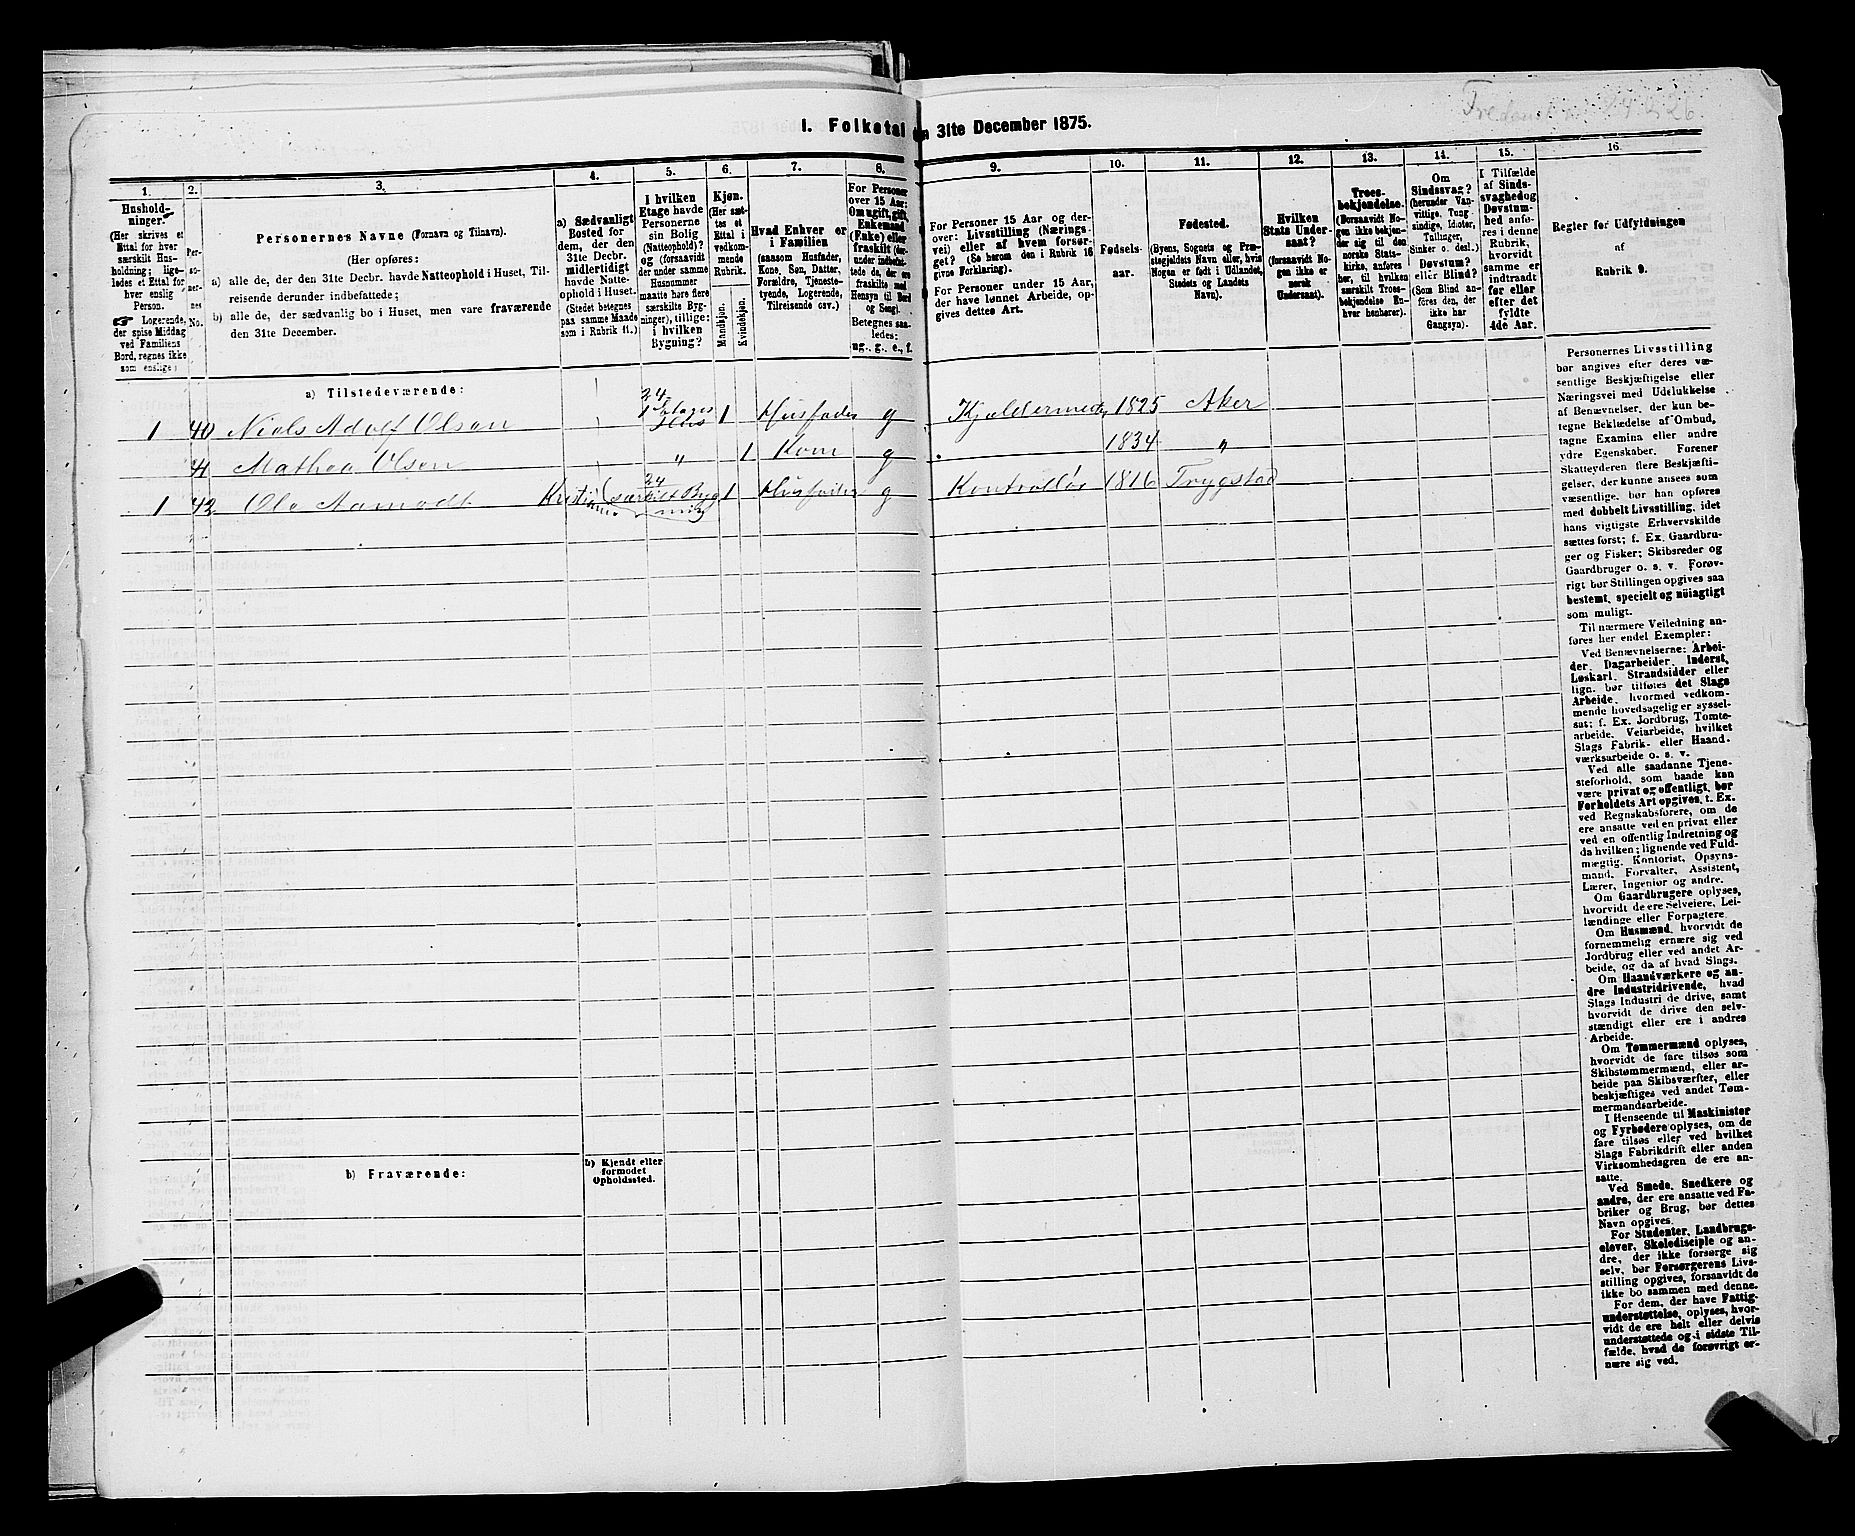 I. Folketal
31te December 1875.
1.
Hushold-
ninger.
(Her skrives et
Ettal for hver
særskilt Hus-
holdning; lige-
ledes et Ettal for
hver enslig
Person.
☞ Logerende,
der spise Middag
ved Familiens
Bord, regnes ikke
som enslige)
2.
Per-
so-
ner-
nes
No.
3.
Personernes Navne (Fornavn og Tilnavn).
(Her opføres:
a) alle de, der den 31te Decbr. havde Natteophold i Huset, Til-
reisende derunder indbefattede;
b) alle de, der sædvanlig bo i Huset, men vare fraværende
den 31te December.
4.
a) Sædvanligt
Bosted for
dem, der den
31te Decbr.
midlertidigt
havde Natte-
ophold i Huset.
(Stedet betegnes
paa samme Maade
som i Rubrik 11.)
5.
I hvilken
Etage havde
Personerne
sin Bolig
(Natteophold)?
og (forsaavidt
der under samme
Husnummer
maatte høre flere
særskilte Byg-
ninger), tillige:
i hvilken
Bygning?
6.
Kjøn.
(Her sæt-
tes et
Ettal i
vedkom-
mende
Rubrik.
Mandkjøn.
Kvindekjøn.
7.
Hvad Enhver er
i Familien
(saasom Husfader,
Kone, Søn, Datter,
Forældre, Tjeneste-
tyende, Logerende,
Tilreisende osv.)
8.
For Personer
over 15 Aar:
Om ugift, gift,
Enkemand
(Enke) eller
fraskilt (der-
under indbefat-
tede de, der ere
fraskilte med
Hensyn til Bord
og Seng).
Betegnes saa-
ledes:
ug., g., e., f.
9.
For Personer 15 Aar og der-
over: Livsstilling (Nærings-
vei) eller af hvem forsør-
get? (Se herom den i Rubrik 16
givne Forklaring).
For Personer under 15 Aar,
der have lønnet Arbeide, op-
gives dettes Art.
10.
Fødsels-
aar.
11.
Fødested.
(Byens, Sognets og Præ-
stegjeldets Navn eller, hvis
Nogen er født i Udlandet,
Stedets og Landets
Navn).
12.
Hvilken
Stats Under-
saat?
(forsaavidt No-
gen ikke er
norsk
Undersaat).
13.
Troes-
bekjendelse.
(Forsaavidt No-
gen ikke bekjen-
der sig til den
norske Stats-
kirke, anføres
her, til hvilken
særskilt Troes-
bekjendelse En-
hver henhører).
14.
Om
Sindssvag?
(herunder Van-
vittige, Tung-
sindige, Idioter,
Tullinger,
Sinker o. desl.)
Døvstum?
eller Blind?
(Som Blind an-
føres den, der
ikke har
Gangsyn).
15.
I Tilfælde
af Sinds-
svaghed og
Døvstum-
hed anfø-
res i denne
Rubrik,
hvorvidt
samme er
indtraadt
før eller
efter det
fyldte
4de Aar.
16.
Regler for Udfyldningen
af
Rubrik 9.
a) Tilstedeværende:
1 40 Niels Adolf Olsen 24 1 Etages Hus 1 Husfader g Kjeldermed 1825 Aker
41 Mathea Olsen " 1 Kone g 1834 "
1 42 Ole Aamodt Kristiania 24 særskilt Byg 1 Husfader g Kontrollør 1816 Trygstad
b) Fraværende:
b) Kjendt eller
formodet
Opholdssted.
Personernes Livsstilling
bør angives efter deres væ-
sentlige Beskjæftigelse eller
Næringsvei med Udelukkelse
af Benævnelser, der kun be-
tegne Beklædelse af Ombud,
tagne Examina eller andre
ydre Egenskaber. Forener
Skatteyderen flere Beskjæfti-
gelser, der kunne ansees som
væsentlige, bør han opføres
med dobbelt Livsstilling, idet
hans vigtigste Erhvervskilde
sættes først; f. Ex. Gaardbru-
ger og Fisker; Skibsreder og
Gaardbruger o. s. v. Forøv-
rigt bør Stillingen opgives saa
bestemt, specielt og nøiagtigt
som muligt.
Til nærmere Veiledning an-
føres her endel Exempler:
Ved Benævnelserne: Arbei-
der, Dagarbeider, Inderst,
Løskarl, Strandsidder eller
lign. bør tilføies det Slags
Arbeide, hvormed vedkom-
mende hovedsagelig er syssel-
sat; f. Ex. Jordbrug, Tomte-
arbeide, Veiarbeide, hvilket
Slags Fabrik- eller Haand-
værksarbeide o. s. v.
Ved alle saadanne Tjene-
steforhold, som baade kan
være privat og offentligt, bør
Forholdets Art opgives, t. Ex.
ved Regnskabsførere, om de
ere ansatte ved en privat eller
ved en offentlig Indretning og
da hvilken; lignende ved Fuld-
mægtig, Kontorist, Opsyns-
mand, Forvalter, Assistent,
Lærer, Ingeniør og andre.
Om Gaardbrugere oplyses,
hvorvidt de ere Selveiere, Lei-
lændinge eller Forpagtere.
Om Husmænd, hvorvidt de
fornemmelig ernære sig ved
Jordbrug eller ved andet Ar-
beide, og da af hvad Slags.
Om Haandværkere og an-
dre Industridrivende, hvad
Slags Industri de drive, samt
hvorvidt de drive den selv-
stændigt eller ere i andres
Arbeide.
Om Tømmermænd oplyses,
hvorvidt de fare tilsøs som
Skibstømmermænd, eller ar-
beide paa Skibsværfter, eller
beskjæftiges ved andet Tøm-
mermandsarbeide.
I Henseende til Maskinister
og Fyrbødere oplyses, om de
fare tilsøs eller ved hvilket
Slags Fabrikdrift eller anden
Virksomhedsgren de ere an-
satte.
Ved Smede, Snedkere og
andre, der ere ansatte ved Fa-
briker og Brug, bør dettes
Navn opgives.
For Studenter, Landbrugs-
elever, Skoledisciple og an-
dre, der ikke forsørge sig
selv, bør Forsørgerens Livs-
stilling opgives, forsaavidt de
ikke bo sammen med denne.
For dem, der have Fattig-
understøttelse, oplyses, hvor-
vidt de ere helt eller delvis
understøttede og i sidste Til-
fælde, hvad de forøvrigt er-
nære sig ved.